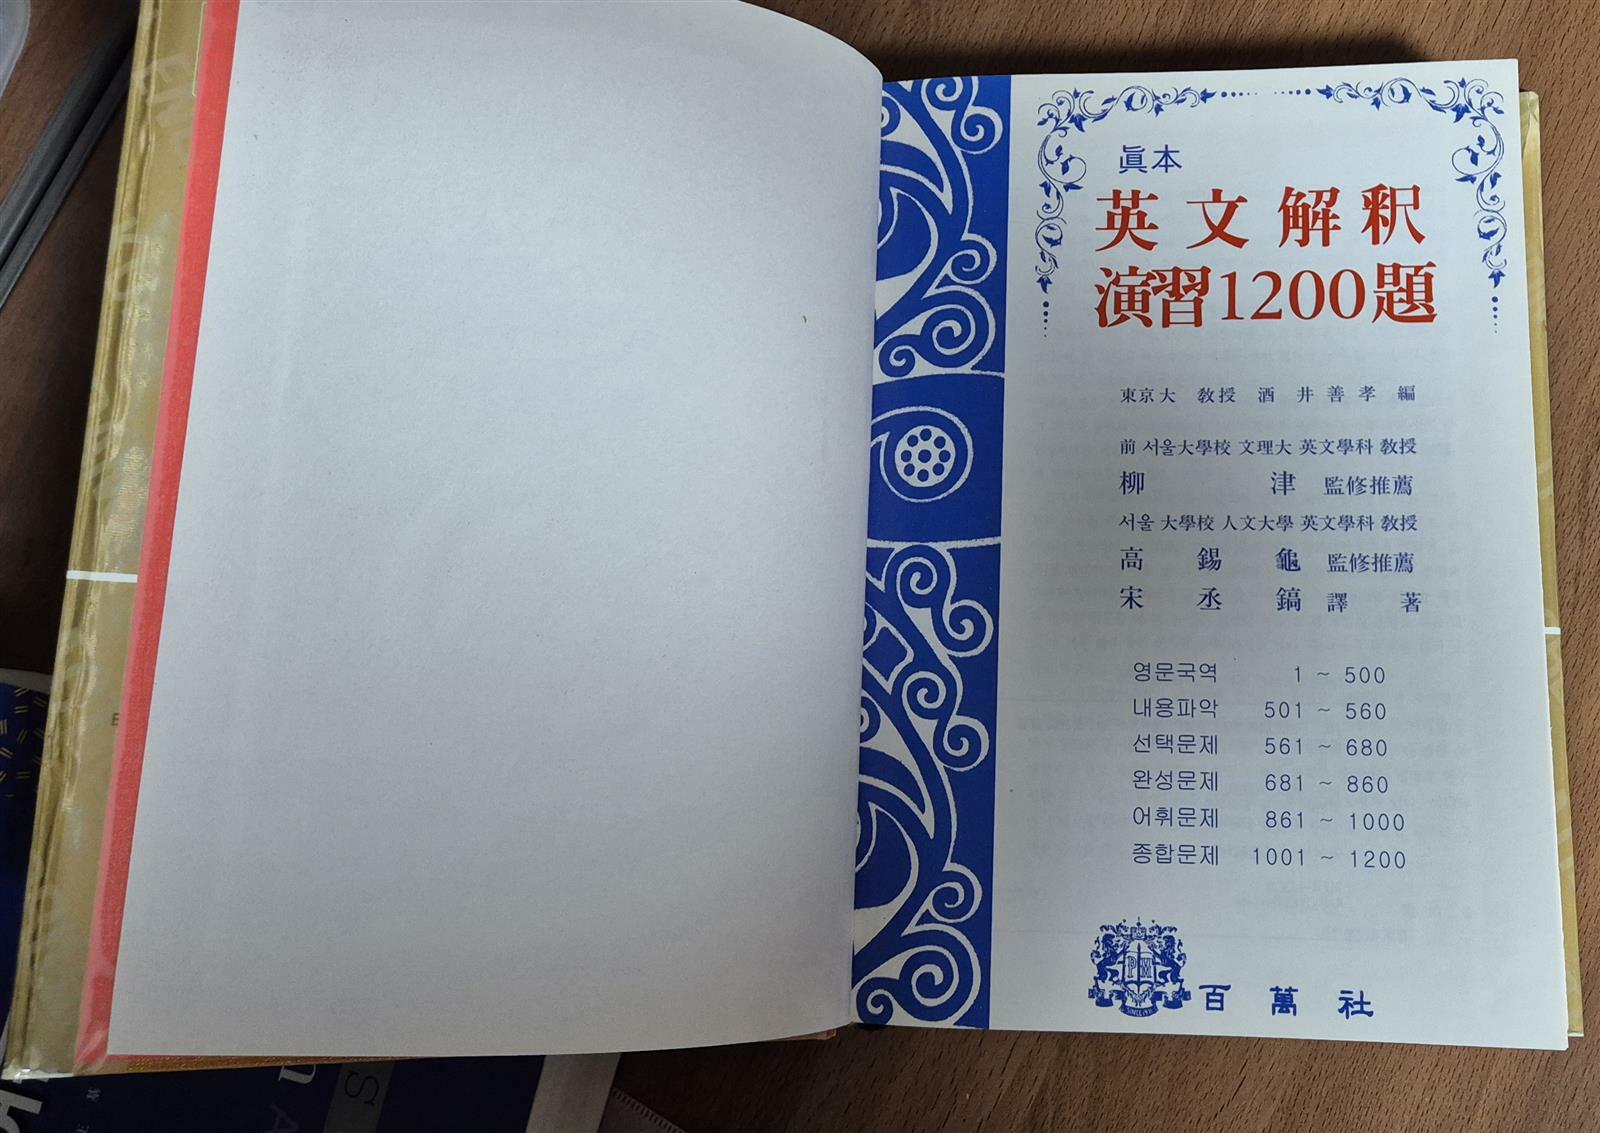 眞本
英文解釈
演習1200題
東京大 敎授 酒井善孝 編
前 서울大學校 文理大 英文學科 敎授
柳津 監修推薦
서울 大學校 人文大學 英文學科 敎授
高錫龜 監修推薦
宋丞鎬 譯著
영문국역 1 ~ 500
내용파악 501 ~ 560
선택문제 561 ~ 680
완성문제 681 ~ 860
어휘문제 861 ~ 1000
종합문제 1001 ~ 1200
PM
百萬社